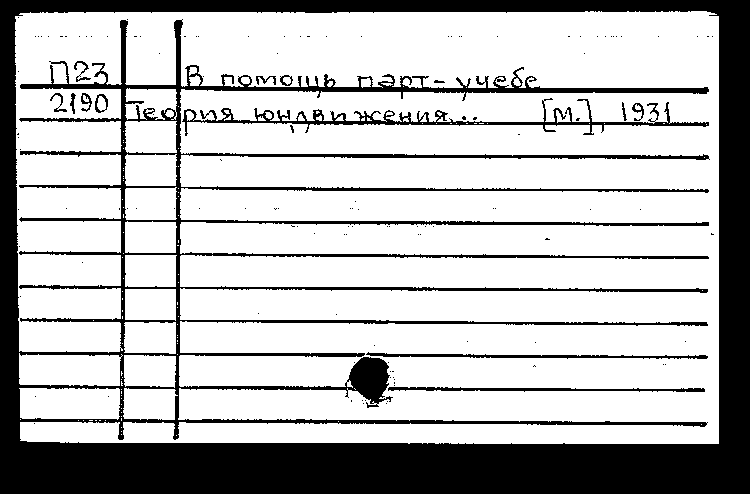 П23 В помощь парт-учебе
2190 Теория юндвижения... [М.], 1931